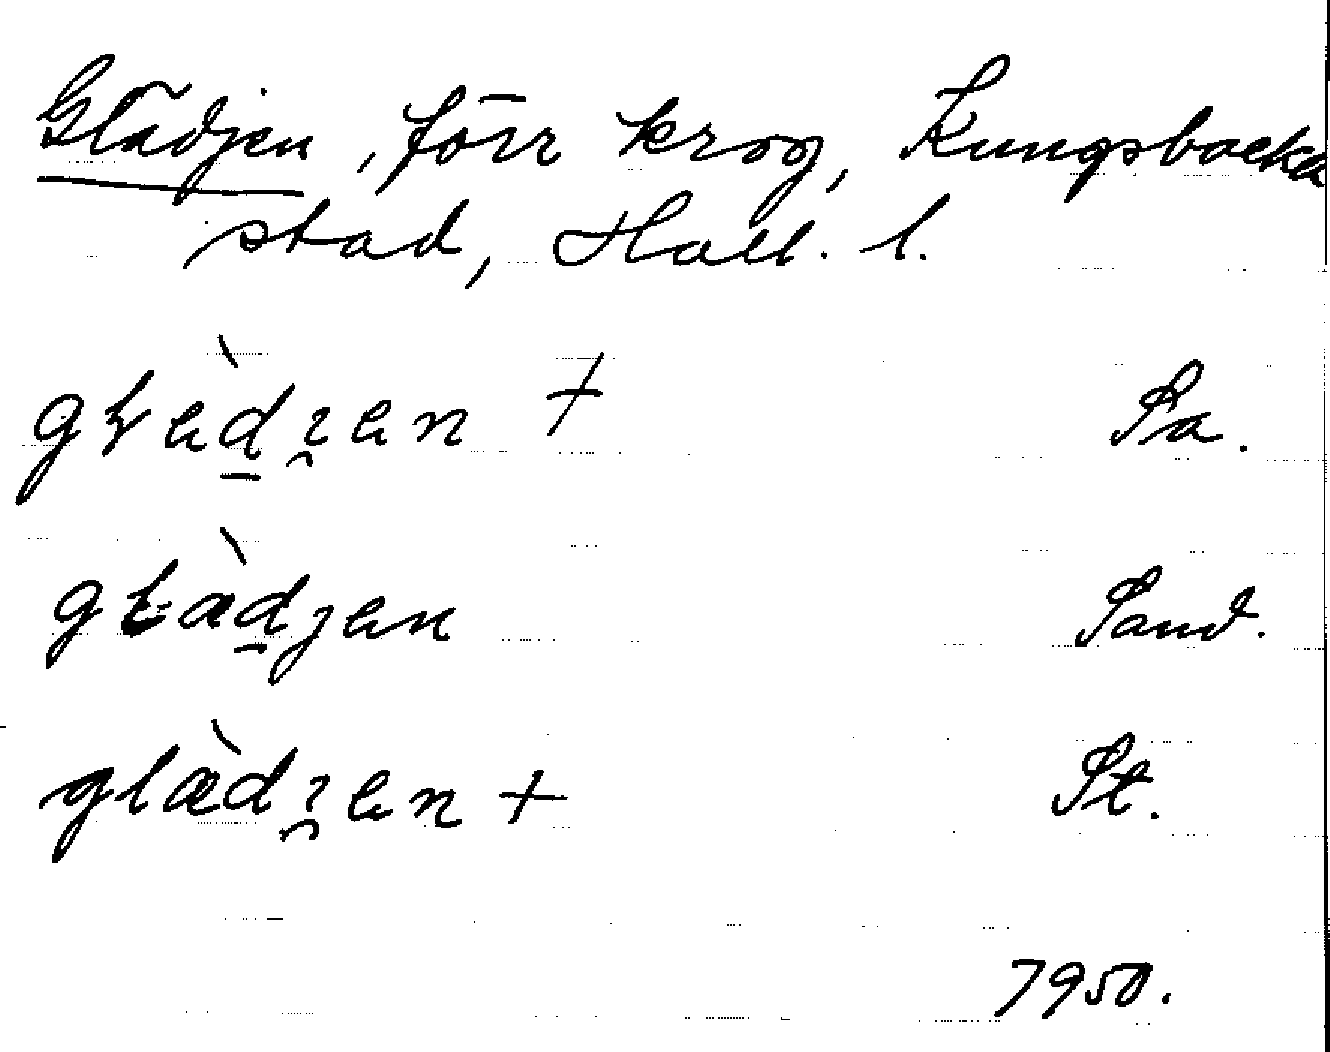 Glädjen, förr krog, Kungsbacka
stad, Hall. l.
glædı̯en + Sa.
gladjen Sand.
glædı̯en + St.
7950.